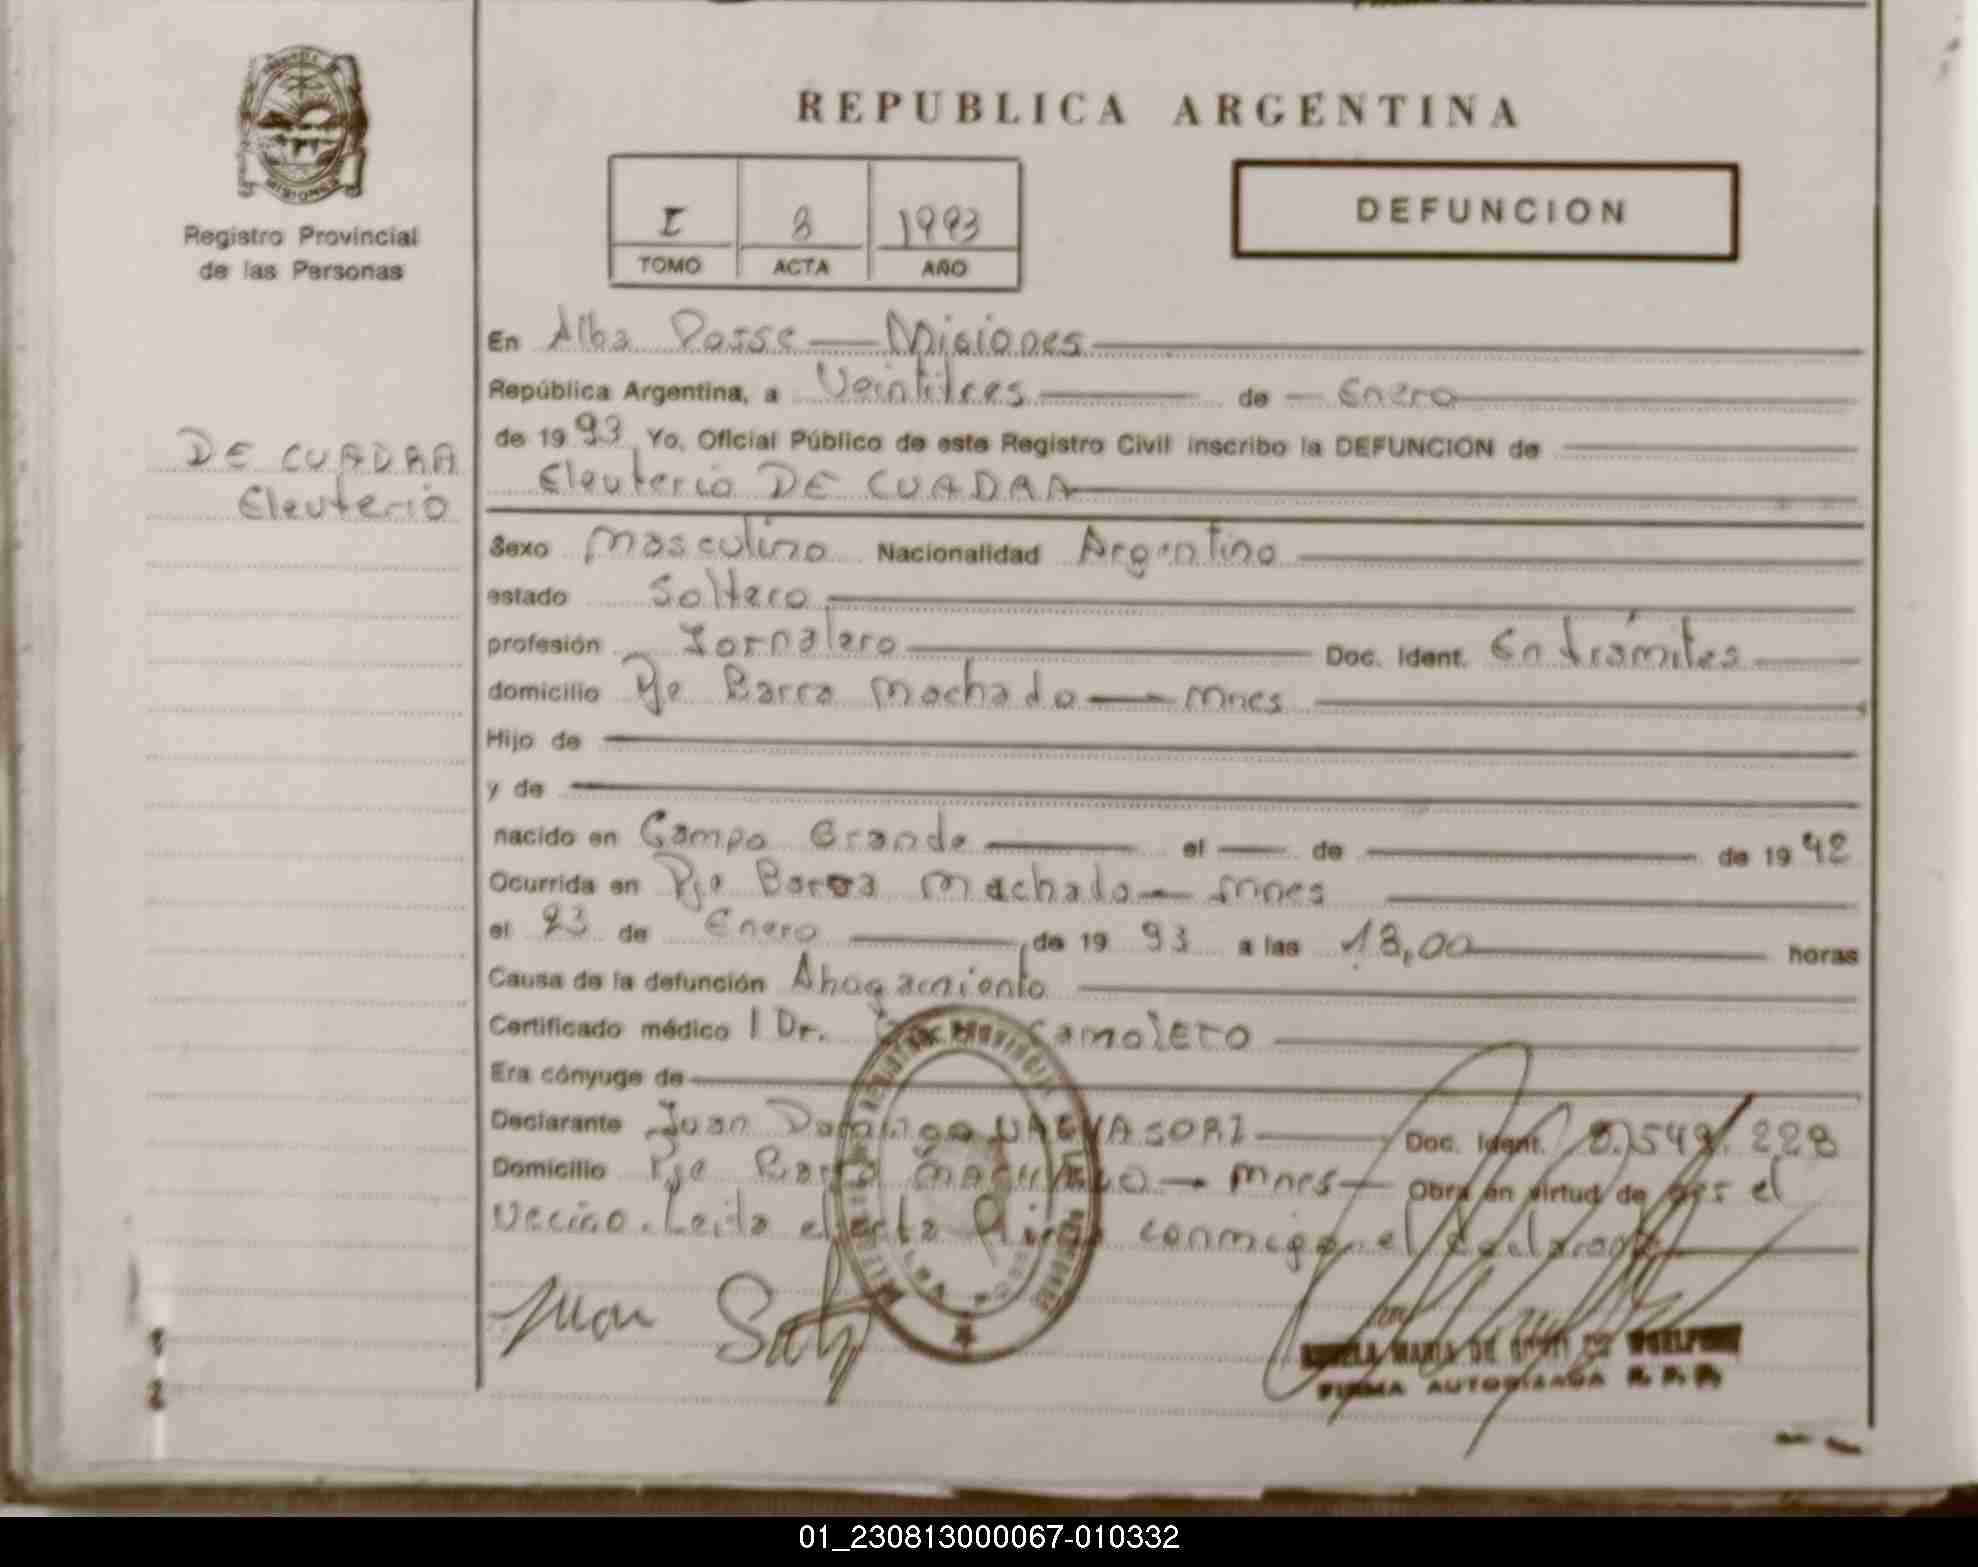 REPUBLICA ARGENTINA
MISIONES
Registro Provincial
de las Personas
I 3 1993
TOMO ACTA AÑO
DEFUNCION
En Alba Posse Misiones
República Argentina, a Veintitres de Enero
DE CUADRA
Eleuterio
de 1993 Yo, Oficial Público de este Registro Civil inscribo la DEFUNCION de
Eleuterio DE CUADRA
Sexo Masculino Nacionalidad Argentino
estado Soltero
profesión Jornalero Doc. Ident. En trámites
domicilio Pje Barra Machado Mnes
Hijo de
y de
nacido en Campo Grande el de de 1942
Ocurrida en Pje Barra Machado Mnes
el 23 de Enero de 1993 a las 18,00 horas
Causa de la defunción Ahogamiento
Certificado médico Dr.
Era cónyuge de
Declarante Juan Domingo Doc. Ident. 228
Domicilio Pje Barra MACHADO Mnes Obra en virtud de ser el
Vecino. Leida el acta firma conmigo el declarante
Juan
MARIA DE
FIRMA AUTORIZADA R. P. P.
1
2
01_230813000067-010332